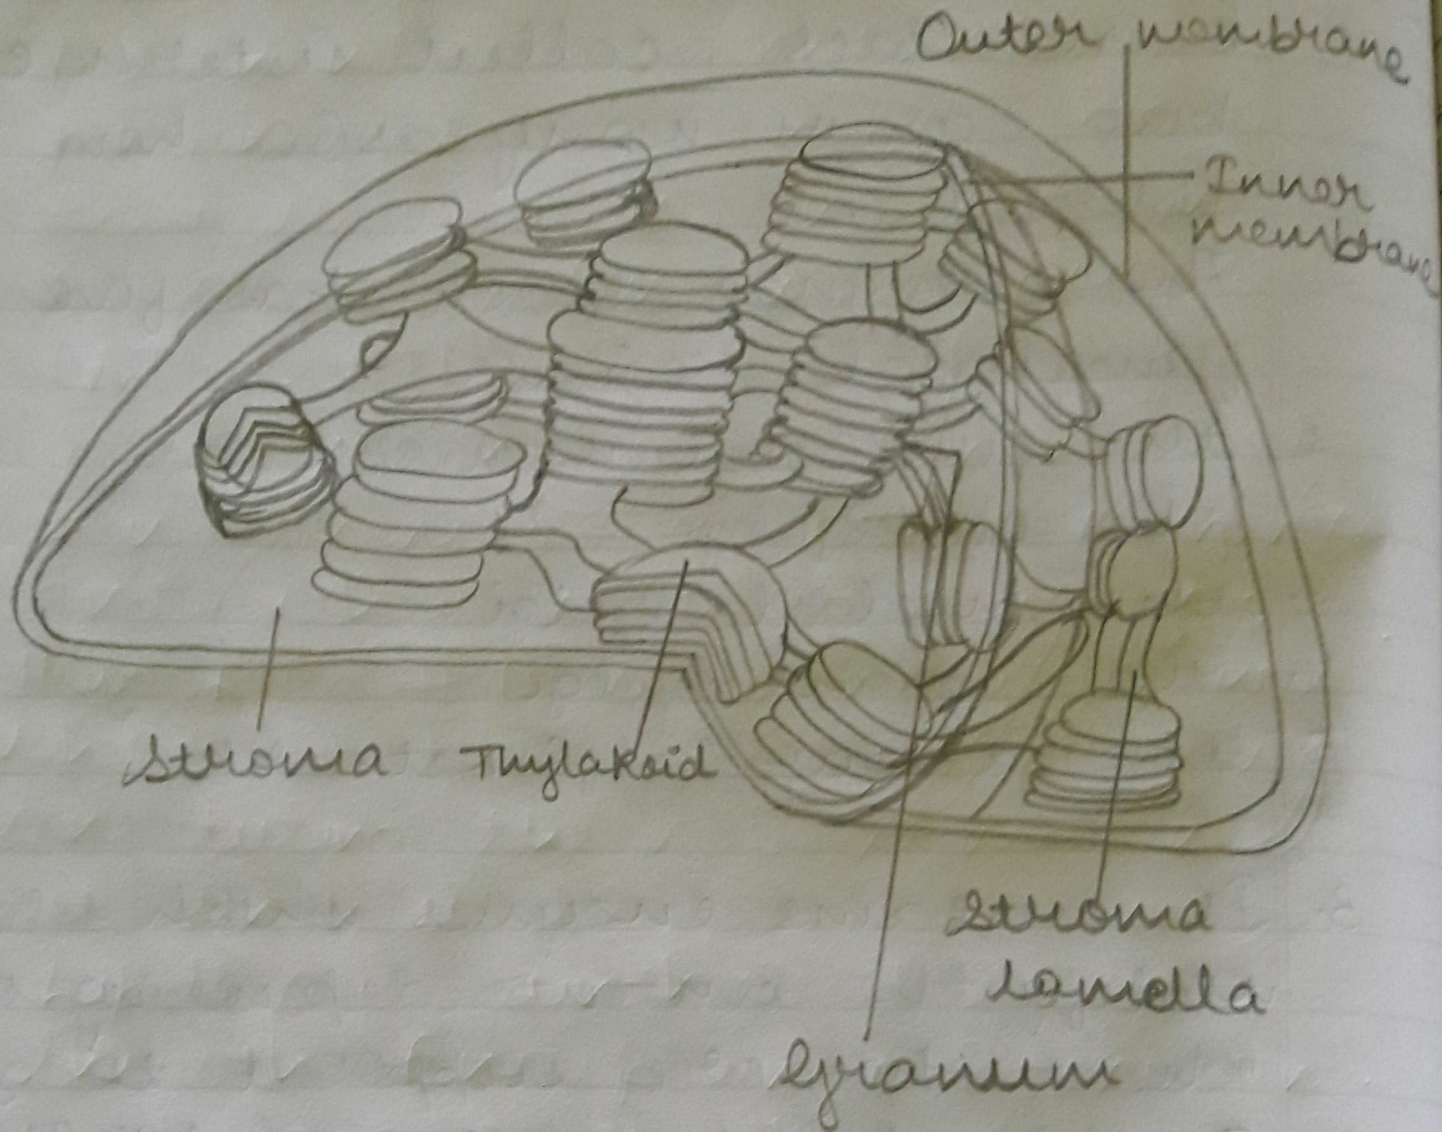 Outer membrane
Inner
membrane
Stroma
Thylakoid
Stroma
lamella
Granum